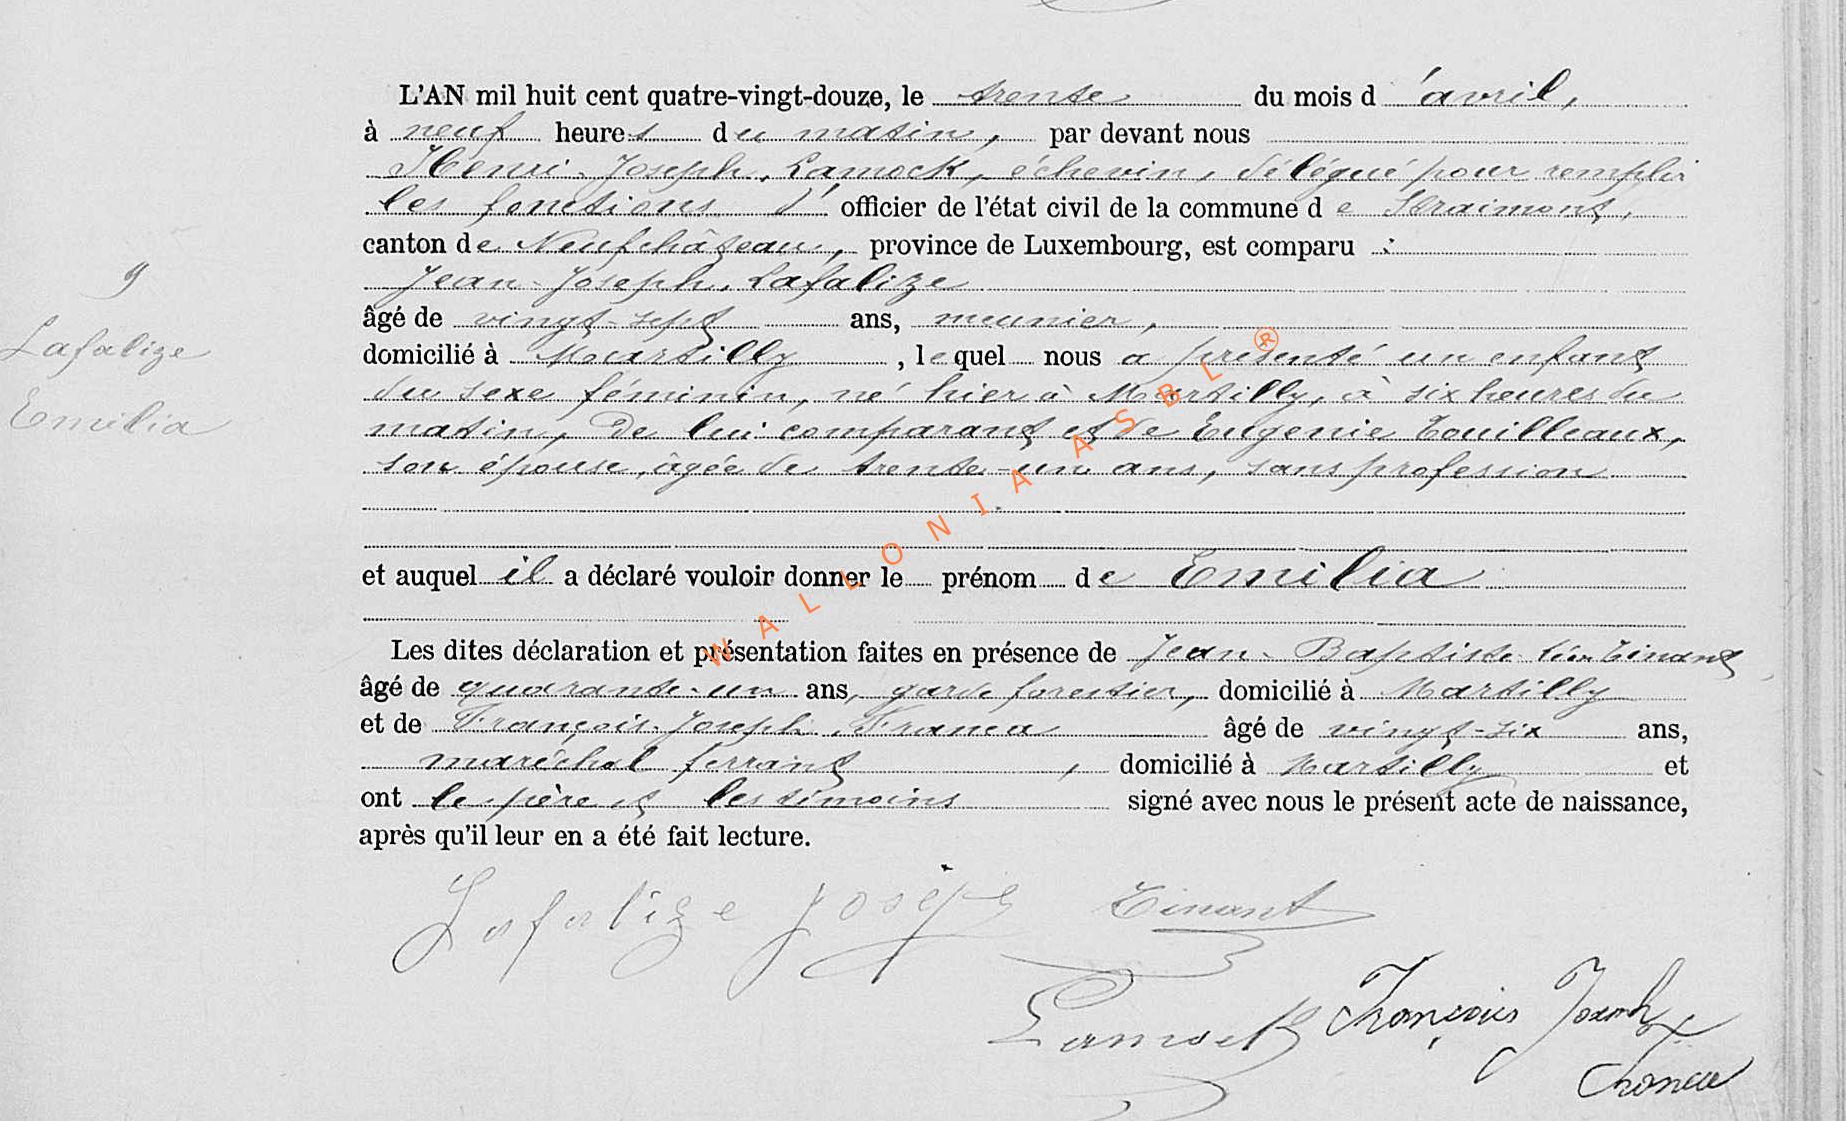 L'AN mil huit cent quatre-vingt-douze, le trente du mois d'avril,
à neuf heures du matin, par devant nous
Henri-Joseph Lamock, échevin, délégué pour remplir
les fonctions d' officier de l'état civil de la commune de Straimont,
canton de Neufchâteau, province de Luxembourg, est comparu :
Jean-Joseph Lafalize
âgé de vingt-sept ans, meunier,
domicilié à Martilly, lequel nous a présenté un enfant
du sexe féminin, né hier à Martilly, à six heures du
matin, de lui comparant et de Eugenie Touilleaux,
son épouse, âgée de trente-un ans, sans profession
et auquel il a déclaré vouloir donner le prénom de Emilia
Les dites déclaration et présentation faites en présence de Jean-Baptiste Tinant,
âgé de quarante-un ans, garde forestier, domicilié à Martilly
et de François-Joseph Franca âgé de vingt-six ans,
maréchal ferrant, domicilié à Martilly et
ont le père et les témoins signé avec nous le présent acte de naissance,
après qu'il leur en a été fait lecture.
9
Lafalize
Emilia
Lafalize Joseph Tinant
Lamock François Joseph
WALLONIA ASBL ®